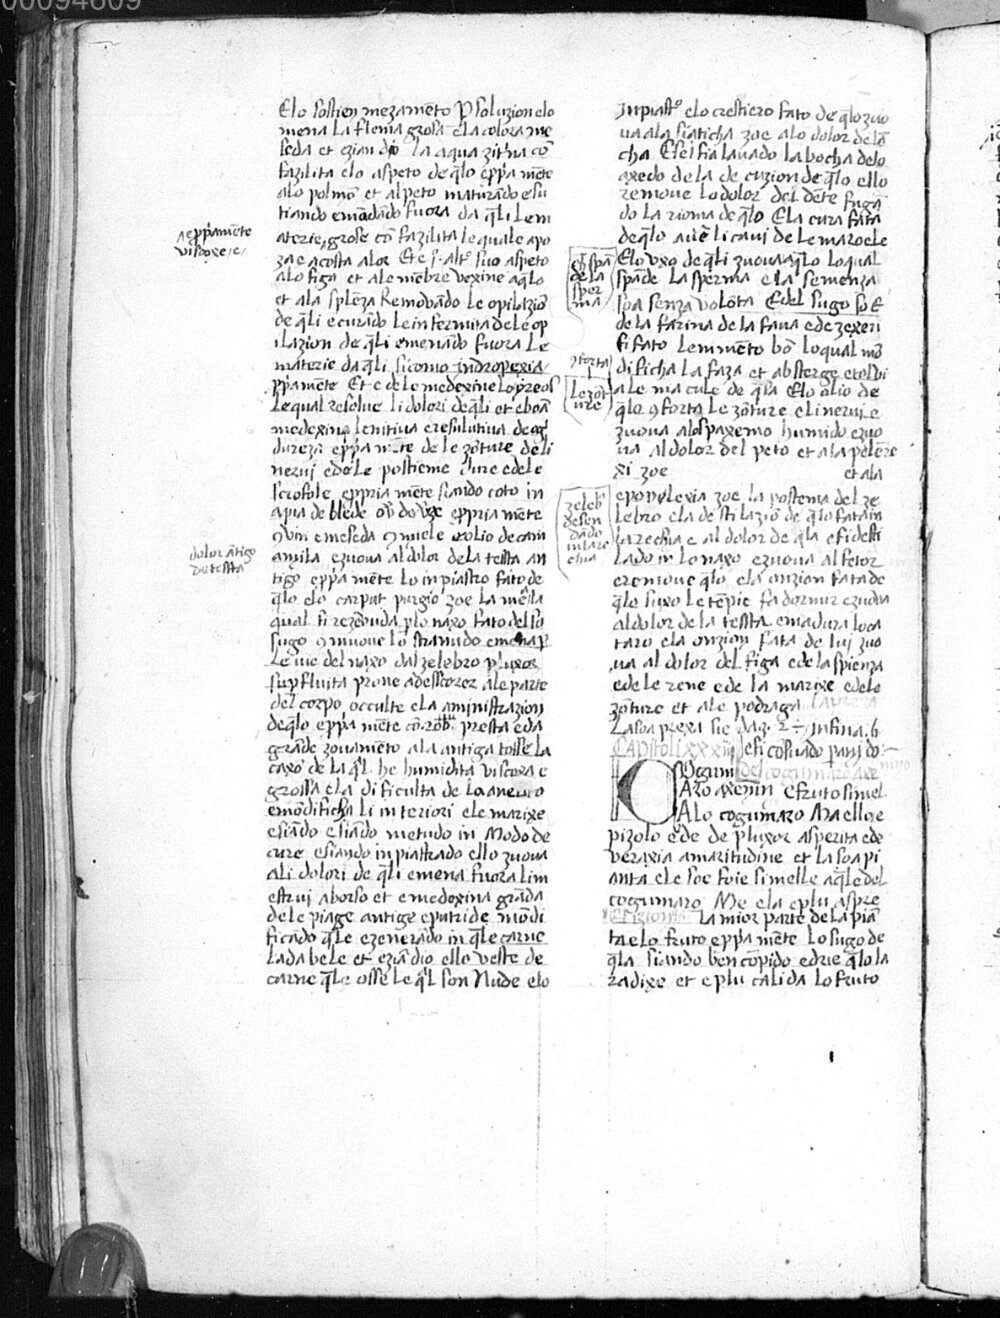 00094609
Elo sostien mezamēto p soluzion elo
mena la flema grosa ela colora me
seda et ezian dio la aqua zitrina cō
fazilita elo aspeto de q̄lo eppa mēte
alo polmō et al peto maturādo e su
tiando emādādo fuora da q̄li le m
aterie grose cō fazilita le quale apo
za e acosta alor Et e suo aspeto
alo figa et ale mēbre vexine a q̄lo
et ala splēza Removādo le opilaziō
de q̄li e curādo le infermita de le op
ilazion de q̄li e menādo fuora le
materie da q̄li si como indropexia
ppamēte Et e de le medexine
Le qual resolue li dolori de q̄li et e boā
medexina lenitiua e resulutiua de og
dureza eppa mēte de le zōture de li
nerui e de le postieme dure e de le
scrofole eppria mēte siando coto in
aqua de blede ou de vxe eppria mēte
e meseda miele e olio de cam
amila e zuoua al dolor de la testa an
tigo eppa mēte lo inpiastro fato de
q̄lo elo carput purgio zoe la mēla
qual si rezeuuda plo naxo fato del so
sugo 9muoue lo stranudo e mena p
le vie del naxo dal zelebro pluxor
supfluita prone a desscorer ale parte
del corpo occulte ela aministrazion
de q̄lo eppa mēte presta e da
grāde zouamēto ala antiga tosse la
caxō de la q̄l he humidita viscoxa e
grossa ela dificulta de lo anelito
e mōdificha li interiori ele marixe
esiādo esiādo metudo in modo de
cure esiando inpiastrado ello zuoua
ali dolori de q̄li e mena fuora li m
estrui aborso et e medexina grāda
dele piage antige e putride mōdi
ficādo q̄le e zenerādo in q̄le carne
lada bele et eziādio ello veste de
carne q̄le osse le q̄l son Nude elo
a eppamēte
viscoxe
dolor ātigo
de testa
Inpiastro elo crestiero fato de q̄lo zuo
ua ala siaticha zoe alo dolor de lā
cha E sel sia lauado la bocha de lo
axedo de la de cuzion de q̄lo ello
remoue lo dolor del dēte fugā
do la rioma de q̄lo Ela cura fata
de q̄lo auē li caui de le maroele
Elo vxo de q̄li zuoua a q̄lo lo qual
spāde la sperma e la semenza
soa senza volōta E del sugo so E
de la farina de la faua e de zexeri
si fato lemmēto bō lo qual mō
dificha la faza et absterge e tol vi
a le macule de q̄la Elo olio de
q̄lo 9forta le zōture e li nerui e
zuoua alo spaxemo humido e zuo
ua al dolor del peto et ala pelēre
xi zoe
et ala
epopulexia zoe la postema del ze
lebro ela destilaziō de q̄lo fata in
la rechia e al dolor de q̄la e si desti
lado in lo naxo e zuoua al fetor
e remoue q̄lo ela onzion fata de
q̄lo suxo le tēpie fa dormir e zuoua
al dolor de la testa e madura lo ca
taro ela onzion fata de lui zuo
ua al dolor del figa e de la spienza
e de le rene e de la marixe e de le
zōture et ale podraga
La soa prexa sie da infina 6
Cogum
del cogumaro axe
Aro axenin e fruto simel
Alo cogumaro Ma ello e
pizolo e de de pluxor asperita e de
veraxia amaritudine et la soa pi
anta ele soe foie simelle a q̄le del
cogumaro Me ela e plu aspre
la mior parte de la piā
ta elo fruto eppa mēte lo sugo de
q̄la siando ben cōpido e drie q̄lo la
radixe et e plu calida lo fruto
spā
de la
sper
ma
9forta
le zōt
ure
zeleb
desen
dado
in la re
chia